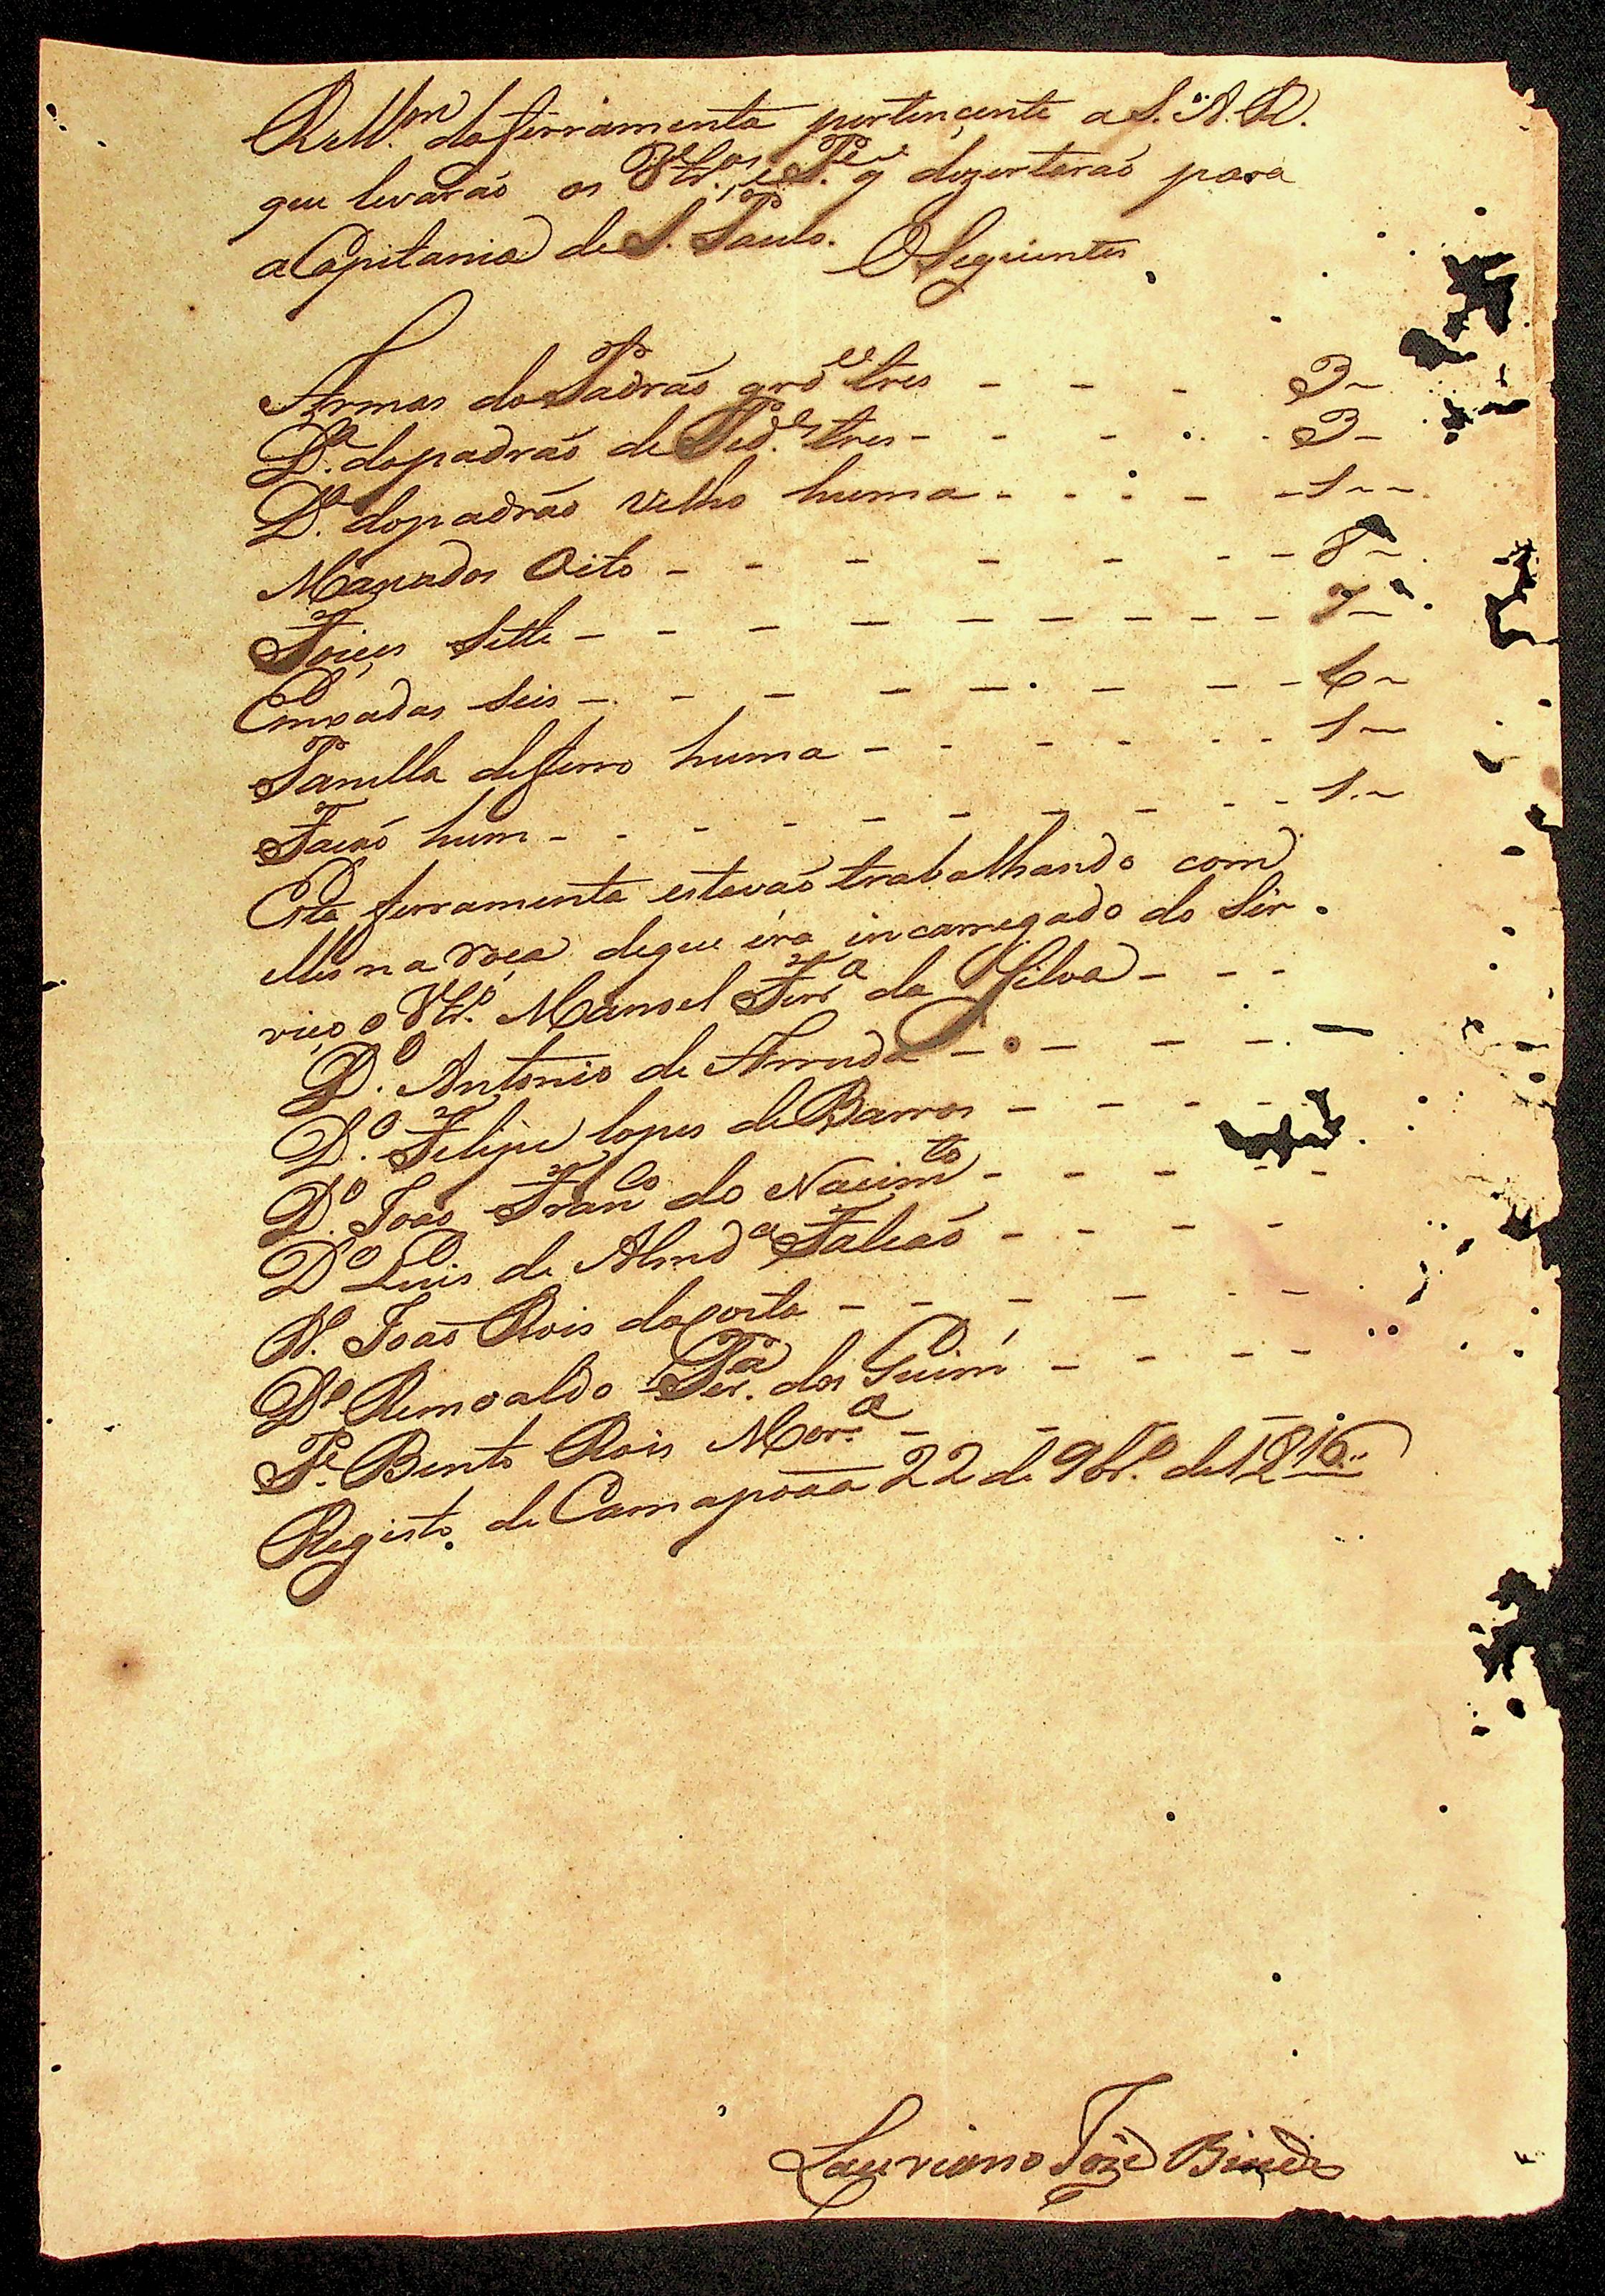 Rellm. da ferramenta pertencente a S. A. R.
que levarão os Vtr.os e P.es q dezertarão para
a Capitania de S. Paulo. O Seguinte
Armas do Padrão grd.es tres - - - 3
D.a do padrão de Ped.es tres - - - 3
D.a do padrão velho huma - - - - 1
Maxados Oito - - - - - - 8
Foices Sette - - - - - - - - - 7
Enxadas Seis - - - - - - - - 6
Panella de ferro huma - - - - - - 1
Facão hum - - - - - - - - - 1
Esta ferramenta estavão trabalhando com
elles na roça de que éra incarregado do Ser
viço o Vtr.o Manoel Ferr.a da Silva - - -
D.o Antonio de Arruda - - - -
D.o Felipe lopes de Barros - - - - -
D.o João Fran.co do Nacim.to - - - - -
D.o Luis de Almd.a Falcão - - - -
D.o João Rois da costa - - - - - -
D.o Remoaldo Per.a dos Guim - - - -
P.e Bento Rois Mor.a - - -
Registo de Camapoãa 22 de 9br.o de 1816
Lauriano Joze